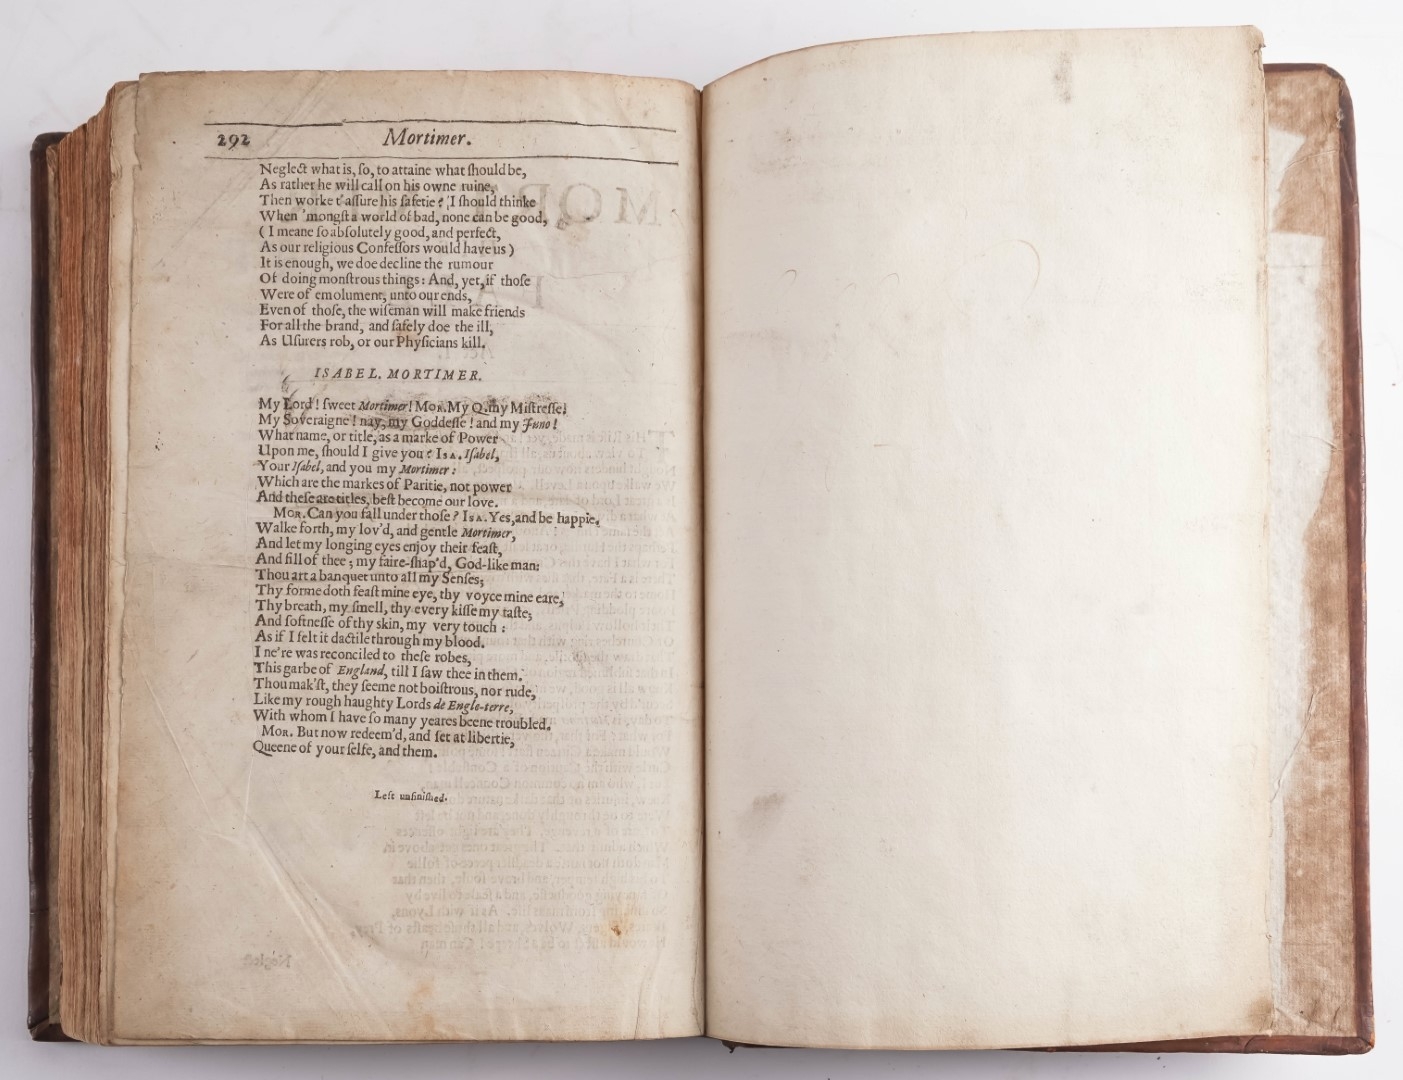 292 Mortimer.
Neglect what is, ſo, to attaine what ſhould be,
As rather he will call on his owne ruine,
Then worke t'aſſure his ſafetie? I ſhould thinke
When 'mongſt a world of bad, none can be good,
(I meane ſo abſolutely good, and perfect,
As our religious Confeſſors would have us)
It is enough, we doe decline the rumour
Of doing monſtrous things: And, yet, if thoſe
Were of emolument, unto our ends,
Even of thoſe, the wiſeman will make friends
For all the brand, and ſafely doe the ill,
As Uſurers rob, or our Phyſicians kill.
ISABEL. MORTIMER.
My Lord! ſweet Mortimer! MOR. My Q. my Miſtreſſe!
My Soveraigne! nay, my Goddeſſe! and my Juno!
What name, or title, as a marke of Power
Upon me, ſhould I give you? ISA. Iſabel,
Your Iſabel, and you my Mortimer:
Which are the markes of Paritie, not power
And theſe are titles, beſt become our love.
MOR. Can you fall under thoſe? ISA. Yes, and be happie.
Walke forth, my lov'd, and gentle Mortimer,
And let my longing eyes enjoy their feaſt,
And fill of thee; my faire-ſhap'd, God-like man:
Thou art a banquet unto all my Senſes;
Thy forme doth feaſt mine eye, thy voyce mine eare,
Thy breath, my ſmell, thy every kiſſe my taſte;
And ſoftneſſe of thy skin, my very touch:
As if I felt it dactile through my blood.
I ne're was reconciled to theſe robes,
This garbe of England, till I ſaw thee in them.
Thou mak'ſt, they ſeeme not boiſtrous, nor rude,
Like my rough haughty Lords de Engle-terre,
With whom I have ſo many yeares beene troubled.
MOR. But now redeem'd, and ſet at libertie,
Queene of your ſelfe, and them.
Left unfiniſhed.